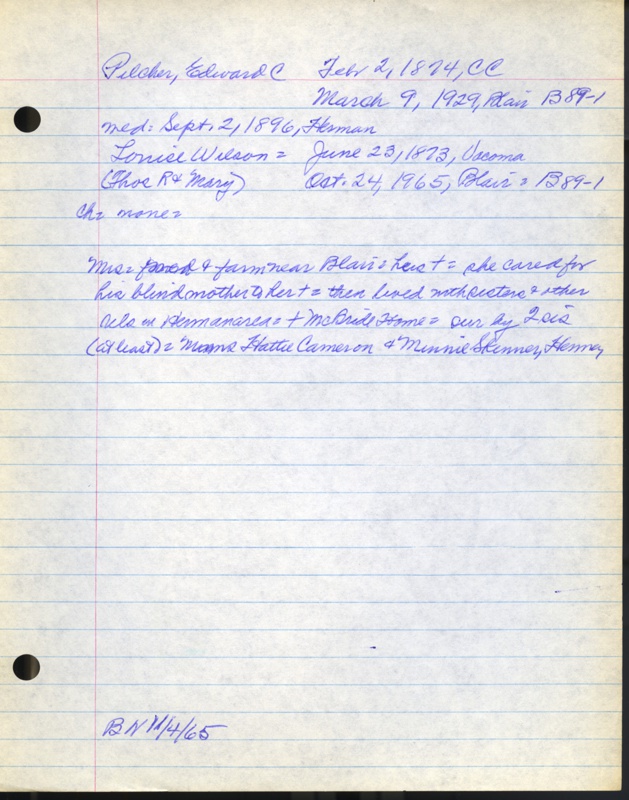 Pilcher, Edward C Febr 2, 1874, CC
March 9, 1929, Blair B89-1
med: Sept. 2, 1896, Herman
Louise Wilson = June 23, 1873, Vacoma
(Thos R & Mary) Oct. 24, 1965, Blair = B89-1
ch = none =
Mrs = & farm near Blair = his + = she cared for
his blind mother to her + = then lived with sisters & other
rels in Herman area = + McBride Home = sur by 2 sis
(at least) = Mmns Hattie Cameron & Minnie Skinner,
BN 11/4/65